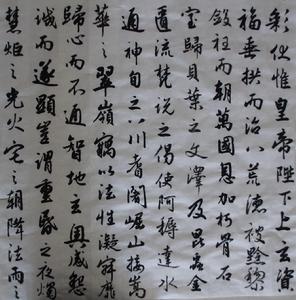 彩伏惟皇帝陛下上玄資
福垂拱而治八荒德被黔黎
斂衽而朝萬國恩加朽骨石
室歸貝葉之文澤及昆蟲金
匱流梵說之偈使阿耨達水
通神旬之八川耆闍崛山接嵩
華之翠嶺竊以法性凝寂靡
歸心而不通智地玄奧感懇
誠而遂顯豈謂重昏之夜燭
慧炬之光火宅之朝降法雨之